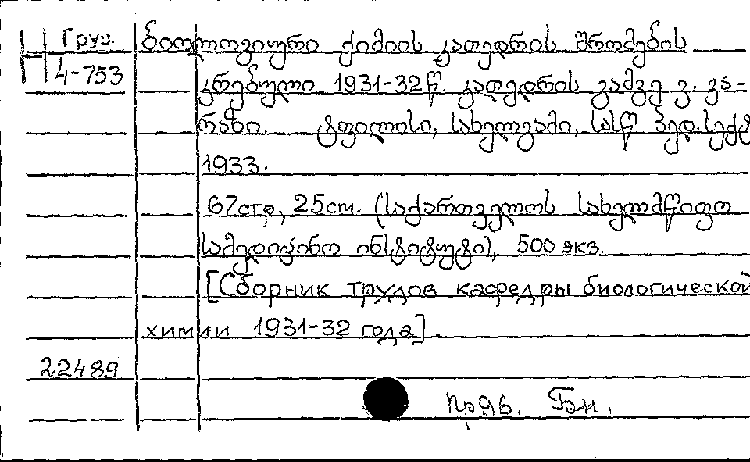 Груз. ბიოლოგიური ქიმიის კათედრის შრომების
4-753 კრებული 1931-32წ. კათედრის გამგე ვ. კა-
რაზი. ტფილისი, სახელგამი, სასწ პედ. სექტ
1933.
67стр, 25cm. (საქართველოს სახელმწიფო
სამედიცინო ინსტიტუტი), 500 экз.
[Сборник трудов кафедры биологической
химии 1931-32 года].
22489